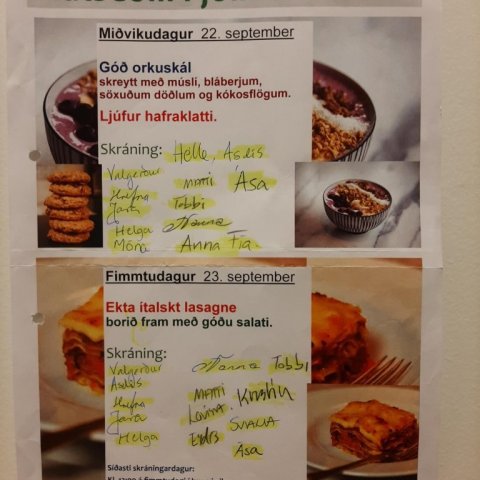 Miðvikudagur 22. september
Góð orkuskál
skreytt með músli, bláberjum,
söxuðum döðlum og kókosflögum.
Ljúfur hafraklatti.
Skráning: Helle, Ásdís
Valgerður
Matti Ása
Hrefna
Jara Tobbi
Helga Hanna
Móna Anna Fía
Fimmtudagur 23. september
Ekta ítalskt lasagne
borið fram með góðu salati.
Skráning: Hanna Tobbi
Valgerður
Ásdís Matti
Hrefna Kristín
Jara Lovísa
Helga Svala
Ása
Síðasti skráningardagur: